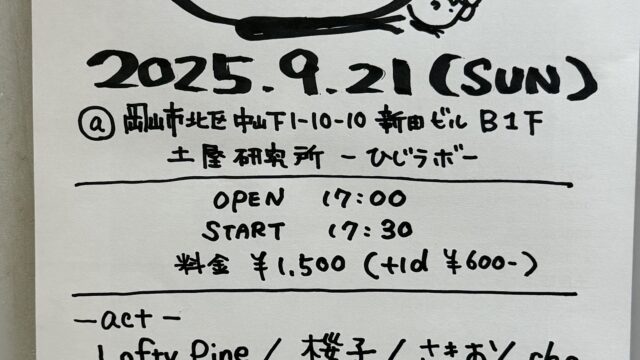 2025.9.21 (SUN)
@ 岡山市北区中山下1-10-10 新田ビル B1F
土屋研究所 -ひじラボ-
OPEN 17:00
START 17:30
料金 ¥1,500 (+1d ¥600-)
-act-
Lofty Pine / 桜子 /